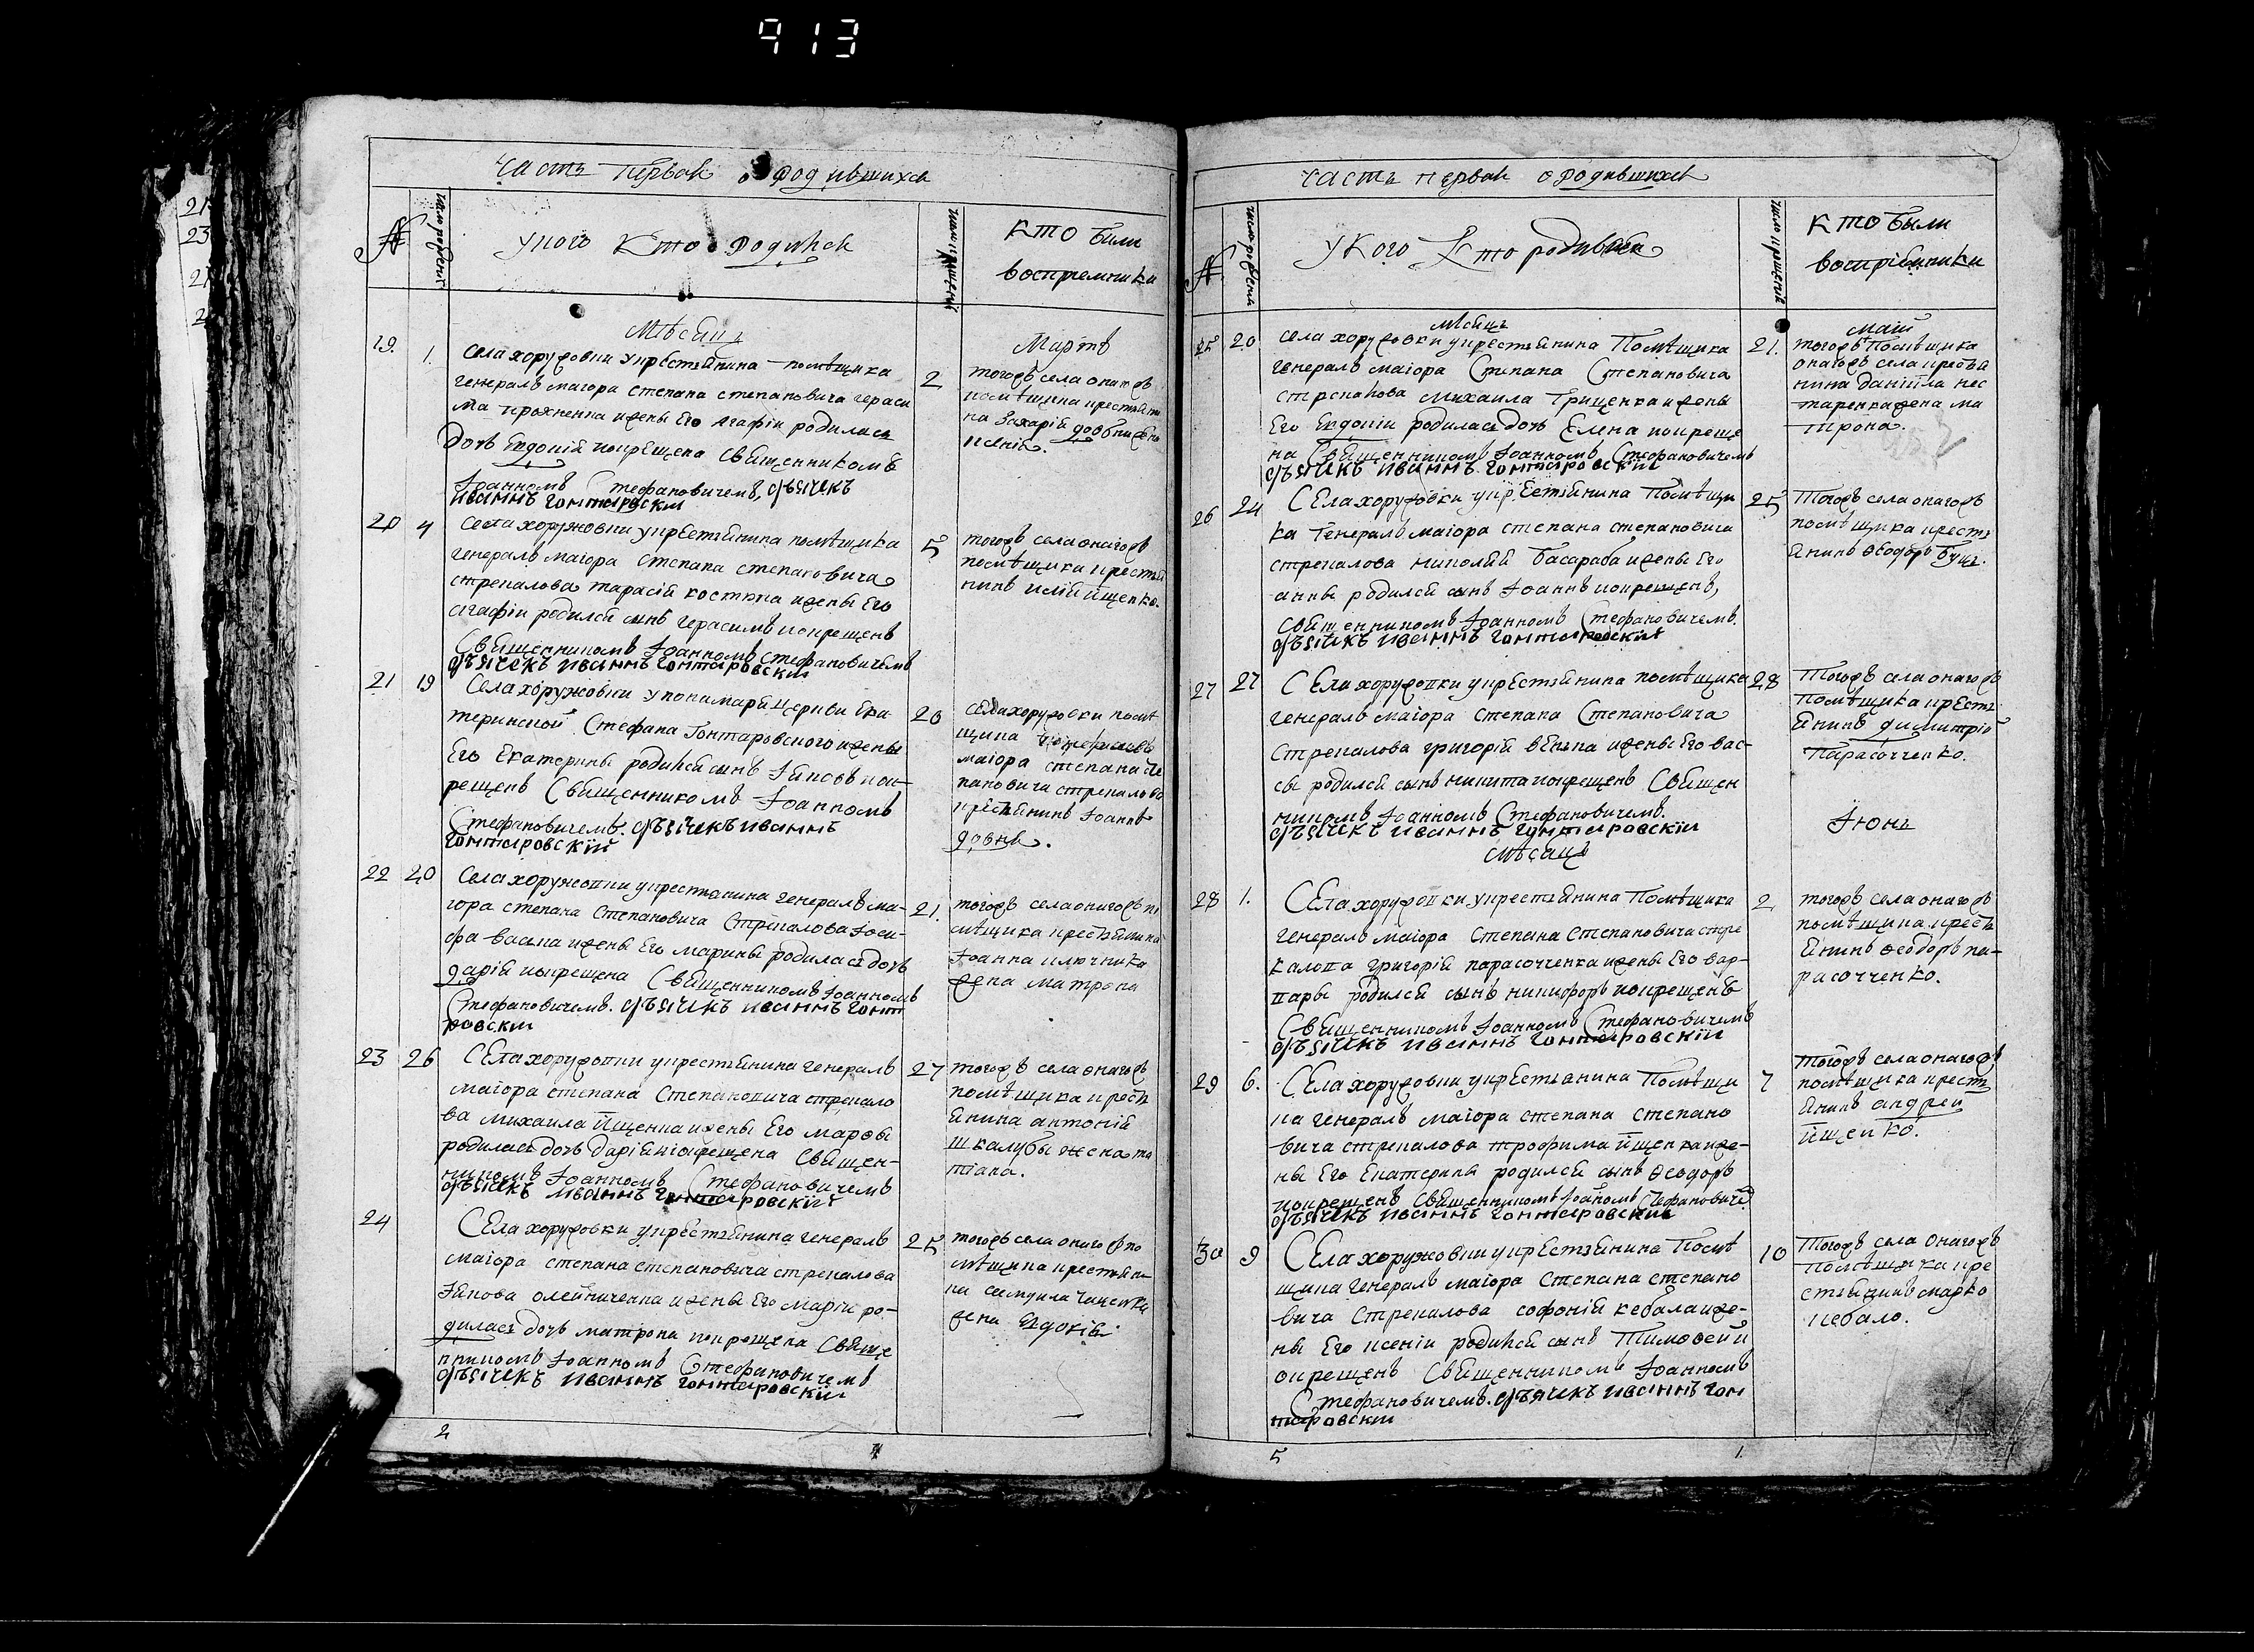 913
Часть первая о родившихся
№
число рождения
У кого кто родился
число крещения
Кто были
восприемники
Мѣсяцъ
Мартъ
19. 1.
Села хоружовки у крестьянина помѣщика
генералъ маіора степана степановича гераси
ма прохненка и жены Его Агафіи родилася
дочь Евдокія крещена священникомъ
Іоанномъ Стефановичемъ, дьячекъ
иваннъ гонтаровскій
2
тогожъ села онагожъ
помѣщика
на Захарій
20 4
Села хоружовки у крестьянина помѣщика
генералъ маіора степана степановича
стрекалова тарасія костюка и жены Его
агафіи родился сынъ герасимъ и окрещенъ
Священникомъ Іоанномъ Стефановичемъ
дьячекъ иваннъ гонтаровскій
5
тогожъ села онагожъ
помѣщика крестья
нинъ илія ищенко.
21 19
Села хоружовки у понамаря церкви Ека
терининской Стефана Гонтаровского и жены
Его Екатерины родился сынъ Іяковъ и ок
рещенъ Священникомъ Іоанномъ
Стефановичемъ. дьячекъ иваннъ
гонтаровскій
20
села хоружовки помѣ
щика
маіора степана сте
пановича стрекалова
крестьянинъ Іоаннъ
22 20
Села хоружовки у крестьянина генералъ ма-
іора степана Степановича Стрекалова Іоси-
фа васка и жены Его марины родилася дочь
дарія и окрещена Священникомъ Іоанномъ
Стефановичемъ. дьячекъ иваннъ гонта
ровскій
21.
тогожъ села онагожъ по
мѣщика крестьянина
Іоанна ключника
жена матрона
23 26
Села хоружовки у крестьянина генералъ
маіора степана Степановича стрекало
ва михаила Ищенка и жены Его марѳы
родилася дочь дарія и окрещена Священ-
никомъ Іоанномъ Стефановичемъ
дьячекъ иваннъ гонтаровскій
27
тогожъ села онагожъ
помѣщика крест
янина антоній
шкалубы жена та
тіана.
24
Села хоружовки у крестьянина генералъ
маіора степана степановича стрекалова
Іякова олейниченка и жены Его маріи ро-
дилась дочь матрона и окрещена Свяще
нникомъ Іоанномъ Стефановичемъ
дьячекъ иваннъ гонтаровскій
25
тогожъ села онагожъ по
мѣщика крестьяни
на самуила
жена Евдокія.
2
4
Часть первая о родившихся
№
число рождения
У кого кто родился
число крещений
Кто были
воспріемники
мѣсяцъ
маій
25 20
села хоружовки у крестьянина Помѣщика
генералъ маіора Степана Степановича
стрекалова михаила Грищенка и жены
Его Евдокіи родилась дочь Елена и окреще
на Священникомъ Іоанномъ Стефановичемъ
дьячекъ иваннъ гонтаровскій
21.
тогожъ Помѣщика
онагожъ села крестья
нина даніила нес
таренка жена ма
трона.
26 24
Села хоружовки у крестьянина Помѣщи
ка Генералъ маіора степана степановича
стрекалова николай басараба и жены Его
анны родился сынъ Іоаннъ и окрещенъ,
Священникомъ Іоанномъ Стефановичемъ.
дьячекъ иваннъ гонтаровскій
25
Тогожъ села онагожъ
помѣщика кресть
янинъ Ѳеодоръ
27 27
Села хоружовки у крестьянина помѣщика
генералъ маіора степана Степановича
Стрекалова григорій и жены Его вас-
сы родился сынъ никита и окрещенъ Священ
никомъ Іоанномъ Стефановичемъ.
дьячекъ иваннъ гонтаровскій
28
Тогожъ села онагожъ
Помѣщика кресть
янинъ димитрій
Парасочченко.
Мѣсяцъ
Іюнь
28 1.
Села хоружовки у крестьянина Помѣщика
генералъ маіора Степана Степановича стре
калова григорій парасочченка и жены Его вар-
вары родился сынъ никифоръ и окрещенъ
Священникомъ Іоанномъ Стефановичемъ
дьячекъ иваннъ гонтаровскій
2
тогожъ села онагожъ
помѣщика кресть
янинъ Ѳеодоръ па-
расочченко.
29 6.
Села хоружовки у крестьянина Помѣщи
ка генералъ маіора степана степано
вича стрекалова трофима ищенка и же-
ны Его Екатерины родился сынъ Ѳеодоръ
и окрещенъ Священникомъ Іоанномъ Стефановиче
дьячекъ иваннъ гонтаровскій
7
тогожъ села онагожъ
помѣщика крест
янинъ андрей
ищенко.
30 9
Села хоружовки у крестьянина Помѣ
щика генералъ маіора Степана степано
вича Стрекалова софоній кебала и же-
ны Его ксеніи родился сынъ Тимоѳей и
окрещенъ Священникомъ Іоанномъ
Стефановичемъ. дьячекъ иваннъ гон
таровскій
10
Тогожъ села Онагожъ
Помѣщика кре
стьянинъ марко
кебало.
5
1.